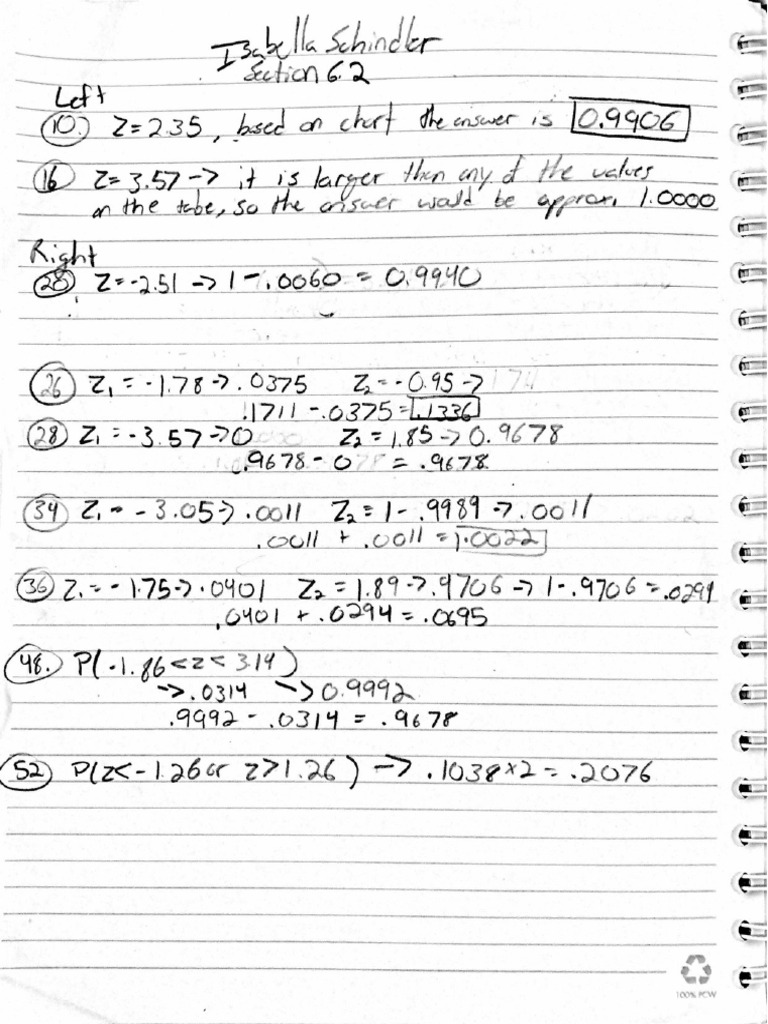 Isabella Schindler
Section 6.2
Left
10. Z = 2.35, based on chart the answer is 0.9906
16 Z = 3.57 -> it is larger then any of the values
on the tabe, so the answer would be approx. 1.0000
Right
20 Z = -2.51 -> 1 - .0060 = 0.9940
26 Z₁ = -1.78 -> .0375 Z₂ = -0.95 ->
.1711 - .0375 = .1336
28 Z₁ = -3.57 -> 0 Z₂ = 1.85 -> 0.9678
.9678 - 0 = .9678
34 Z₁ = -3.05 -> .0011 Z₂ = 1 - .9989 -> .0011
.0011 + .0011 = 1.0022
36 Z₁ = -1.75 -> .0401 Z₂ = 1.89 -> .9706 -> 1 - .9706 = .0294
.0401 + .0294 = .0695
48. P(-1.86 < z < 3.14)
-> .0314 -> 0.9992
.9992 - .0314 = .9678
52 P(z < -1.26 or z > 1.26) -> .1038 x 2 = .2076
100% PCW